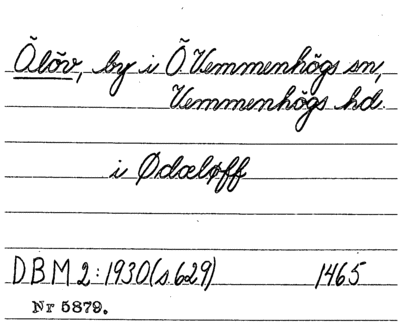 Ölöv, by i Ö Vemmenhögs sn,
Vemmenhögs hd.
i Ødæløff
DBM 2:1930(s 629) 1465
Nr 5879.